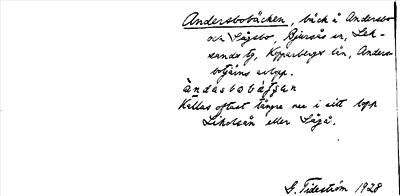 Andersbobäcken, bäck å Andersbo
och Sågsbo, Bjursås sn, Lek-
sands tg, Kopparbergs län, Anders-
botjärns avlopp.
ándasbobä́ʃʃan
Kallas oftast längre ner i sitt lopp
Likolsån eller Sågå.
G. Tideström 1928